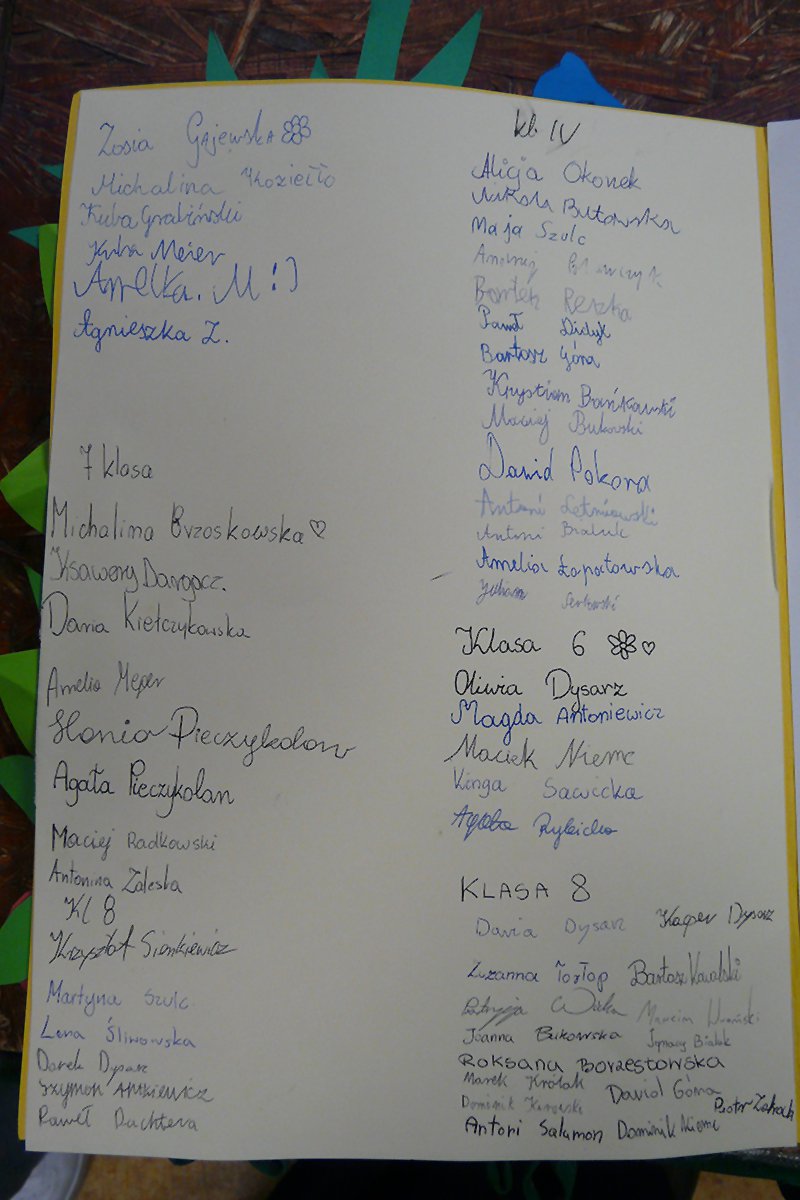 Zosia Gajewska
Michalina Koziełło
Kuba Grabiński
Kuba Meier
Amelka. M :)
Agnieszka Z.
7 klasa
Michalina Brzoskowska ♡
Ksawery Dargacz.
Daria Kiełczykowska
Amelia Meyer
Hania Pieczykolan
Agata Pieczykolan
Maciej Radkowski
Antonina Zaleska
Kl 8
Krzysztof Sienkiewicz
Martyna Szulc
Lena Śliwowska
Darek Dysarz
Szymon
Paweł Duchtera
kl. IV
Alicja Okonek
Nikola Butowska
Maja Szulc
Andrzej
Bartek Reszka
Paweł
Bartosz Góra
Krystian Bańkowski
Maciej Bukowski
Dawid Pokora
Antoni
Antoni Białuk
Amelia Łopatowska
Julian
Klasa 6 ♡
Oliwia Dysarz
Magda Antoniewicz
Maciek Niemc
Kinga Sawicka
Agata Rybicka
KLASA 8
Daria Dysarz Kacper Dysarz
Zuzanna Tortop Bartosz Kowalski
Patrycja Marcin
Joanna Bukowska Ignacy Białuk
Roksana Borzestowska
Marek Królak Dawid Góra
Dominik Piotr
Antoni Salamon Dominik Niemc